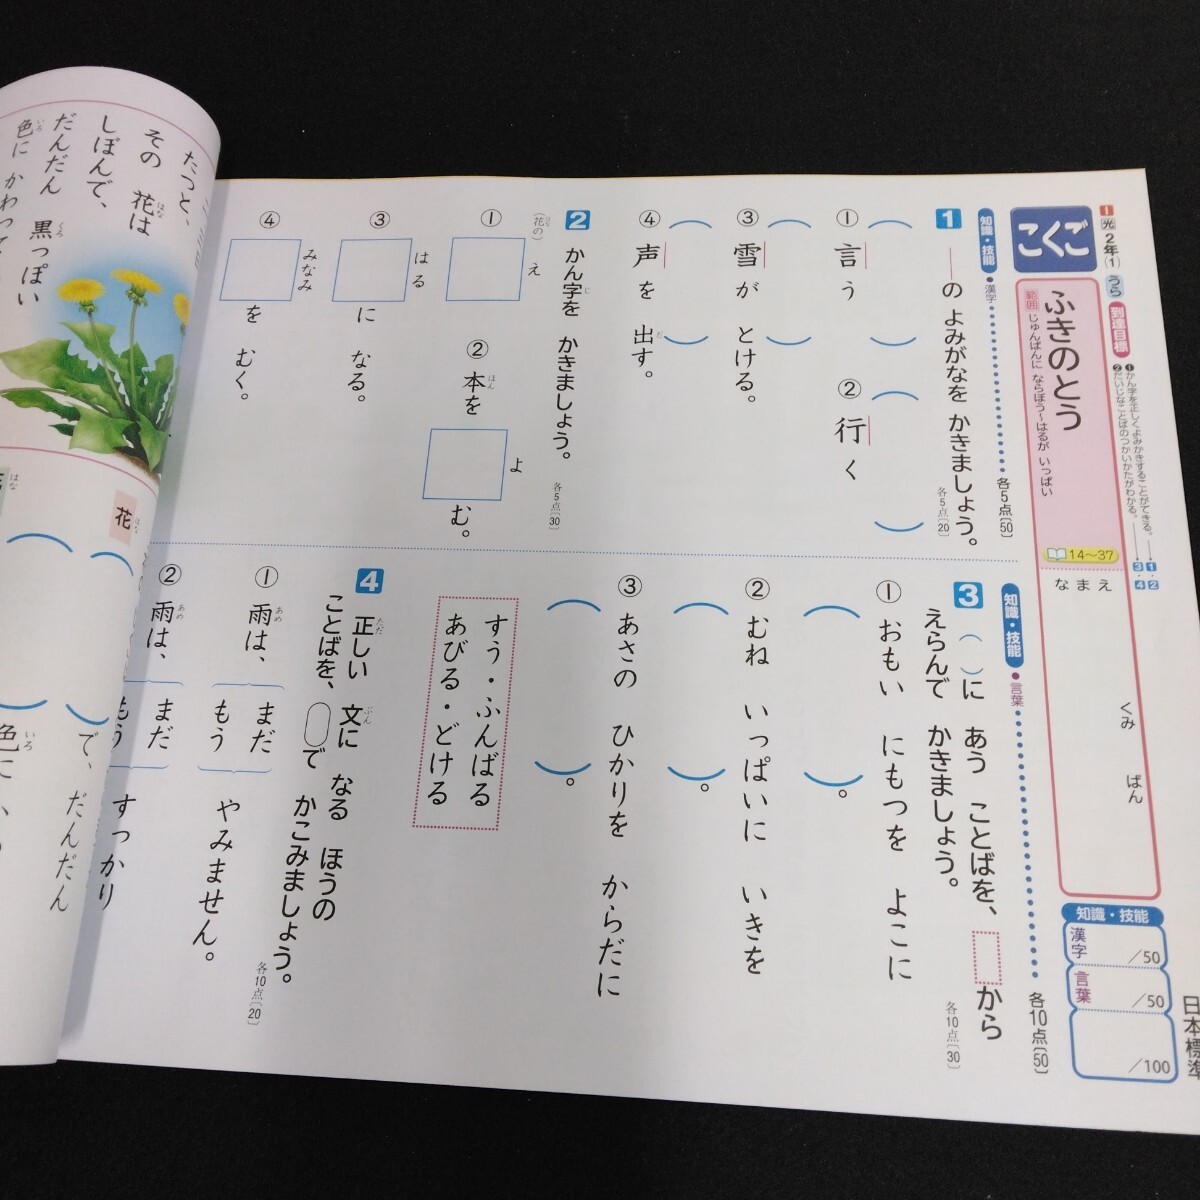 光 2年(1)
うら
到達目標
❶かん字を正しくよみかきすることができる。 1・2
❷だいじなことばのつかいかたがわかる。 3・4
こくご
ふきのとう
範囲 じゅんばんに ならぼう〜はるが いっぱい
14〜37
なまえ
くみ
ばん
知識・技能
漢字 /50
言葉 /50
/100
日本標準
知識・技能 ●漢字 各5点〔50〕
1 ――の よみがなを かきましょう。 各5点〔20〕
① 言う
② 行く
③ 雪が とける。
④ 声を 出す。
だ
2 かん字を かきましょう。 各5点〔30〕
じ
① (花の) え
はな
② 本を よ む。
ほん
③ はる に なる。
④ みなみ を むく。
知識・技能 ●言葉 各10点〔50〕
3 ( )に あう ことばを、 から
えらんで かきましょう。 各10点〔30〕
① おもい にもつを よこに
( )。
② むね いっぱいに いきを
( )。
③ あさの ひかりを からだに
( )。
すう・ふんばる
あびる・どける
4 正しい 文に なる ほうの
ただ ぶん
ことばを、 で かこみましょう。 各10点〔20〕
① 雨は、 まだ もう やみません。
あめ
② 雨は、 まだ もう すっかり
あめ
たつと、
その 花は
はな
しぼんで、
だんだん 黒っぽい
くろ
色に かわって
いろ
花
はな
はな
で、だんだん
色に
いろ